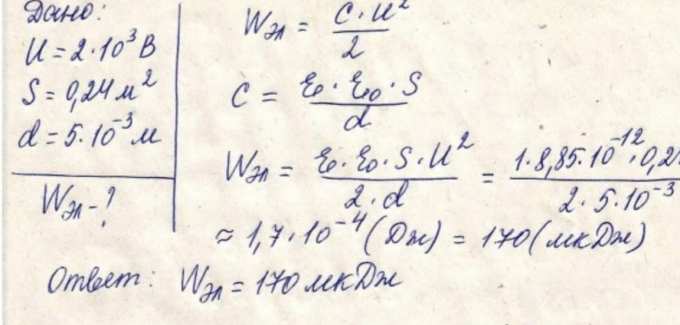 Дано:
U = 2·10³ В
S = 0,24 м²
d = 5·10⁻³ м
Wэл - ?
Wэл = C·U² / 2
C = ε·ε₀·S / d
Wэл = ε·ε₀·S·U² / 2·d = 1·8,85·10⁻¹²·0,2 / 2·5·10⁻³
≈ 1,7·10⁻⁴ (Дж) = 170 (мкДж)
Ответ: Wэл = 170 мкДж